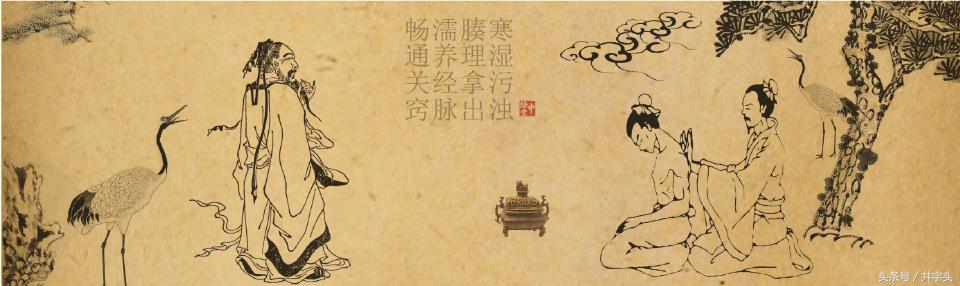 寒湿污浊
腠理拿出
濡养经脉
畅通关窍
头条号 / 井字头